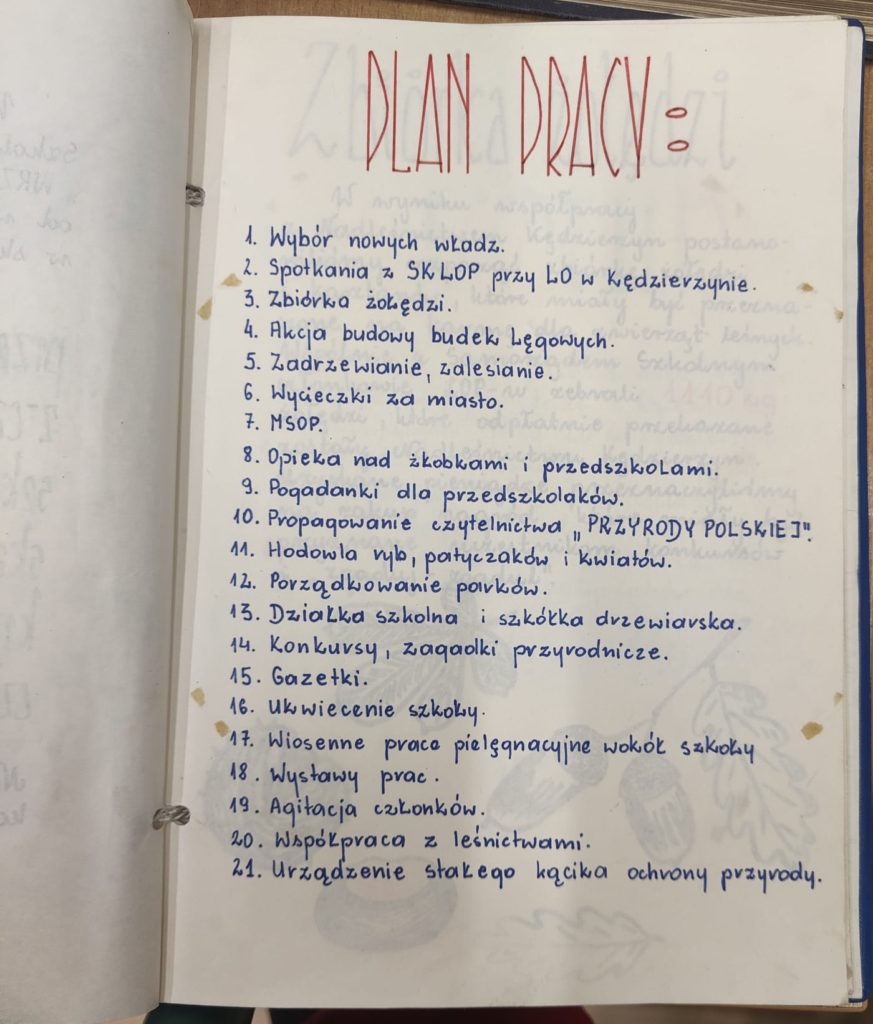 PLAN PRACY:
1. Wybór nowych władz.
2. Spotkania z SKLOP przy LO w Kędzierzynie.
3. Zbiórka żołędzi.
4. Akcja budowy budek lęgowych.
5. Zadrzewianie, zalesianie.
6. Wycieczki za miasto.
7. MSOP.
8. Opieka nad żłobkami i przedszkolami.
9. Pogadanki dla przedszkolaków.
10. Propagowanie czytelnictwa „PRZYRODY POLSKIEJ".
11. Hodowla ryb, patyczaków i kwiatów.
12. Porządkowanie parków.
13. Działka szkolna i szkółka drzewiarska.
14. Konkursy, zagadki przyrodnicze.
15. Gazetki.
16. Ukwiecenie szkoły.
17. Wiosenne prace pielęgnacyjne wokół szkoły
18. Wystawy prac.
19. Agitacja członków.
20. Współpraca z leśnictwami.
21. Urządzenie stałego kącika ochrony przyrody.